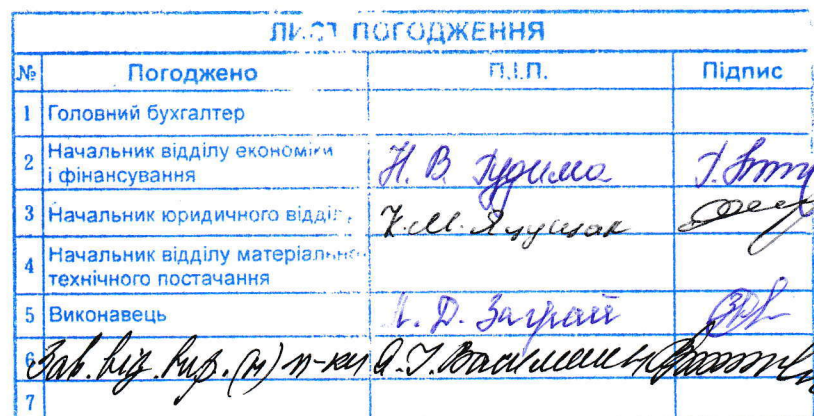 ЛИСТ ПОГОДЖЕННЯ
№ Погоджено П.І.П. Підпис
1 Головний бухгалтер
2 Начальник відділу економіки
і фінансування Н. В. Гудима
3 Начальник юридичного відділу К. М. Яцущак
4 Начальник відділу матеріально-
технічного постачання
5 Виконавець Д. Заграй
6 Зав. від. (н)
7